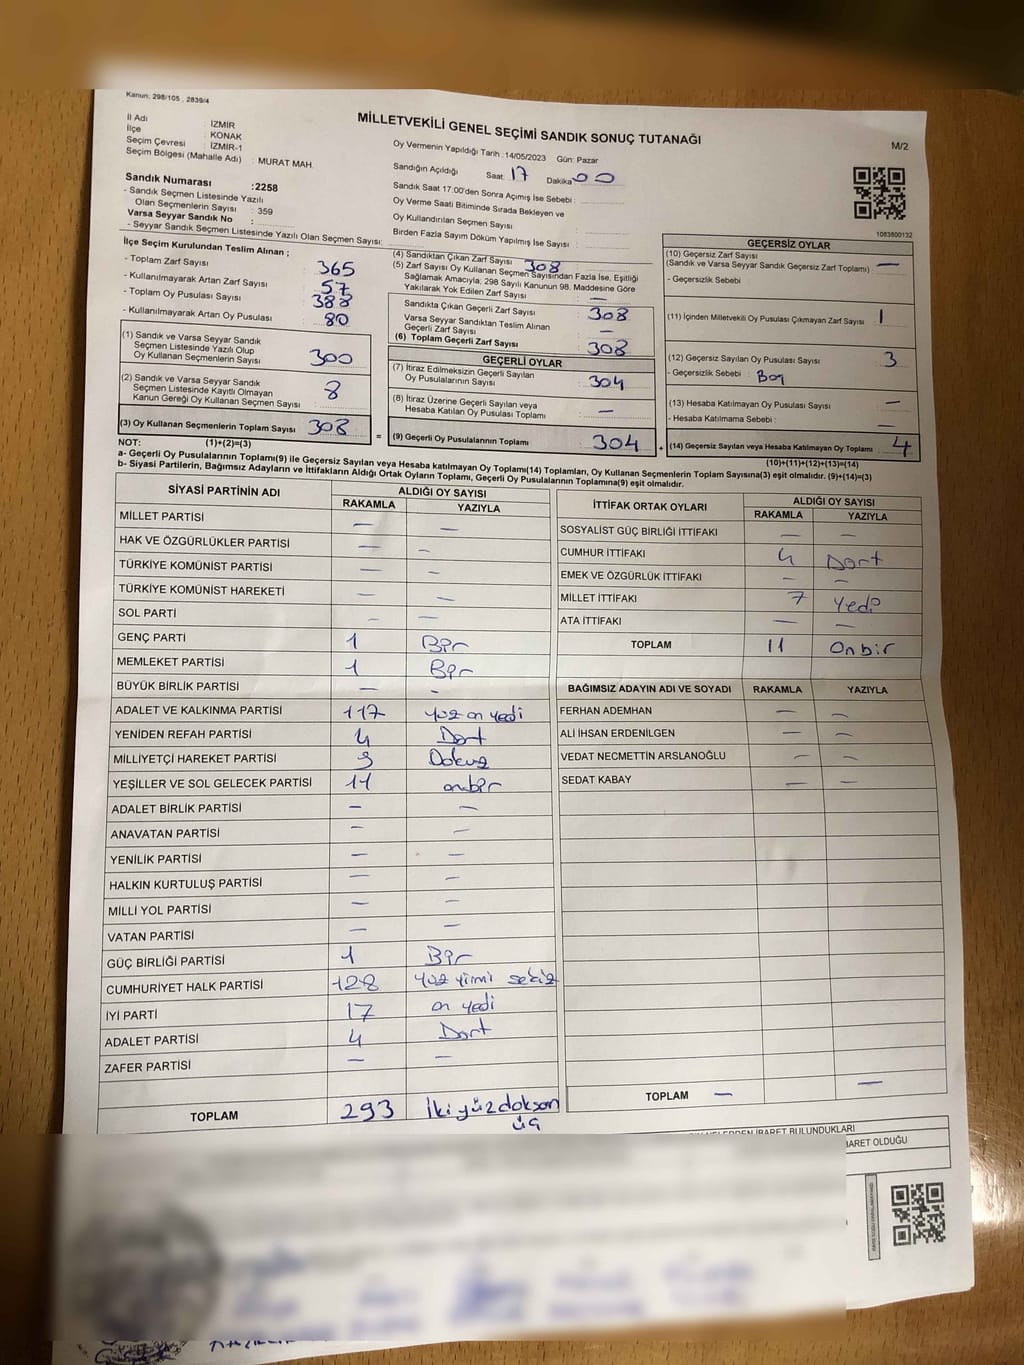 Kanun; 298/105 , 2839/4
MİLLETVEKİLİ GENEL SEÇİMİ SANDIK SONUÇ TUTANAĞI
M/2
İl Adı : İZMİR
İlçe : KONAK
Seçim Çevresi : İZMİR-1
Seçim Bölgesi (Mahalle Adı) : MURAT MAH.
Sandık Numarası :2258
- Sandık Seçmen Listesinde Yazılı
Olan Seçmenlerin Sayısı : 359
Varsa Seyyar Sandık No :
- Seyyar Sandık Seçmen Listesinde Yazılı Olan Seçmen Sayısı:
Oy Vermenin Yapıldığı Tarih :14/05/2023 Gün: Pazar
Sandığın Açıldığı Saat 17 Dakika 00
Sandık Saat 17:00'den Sonra Açımış İse Sebebi :
Oy Verme Saati Bitiminde Sırada Bekleyen ve
Oy Kullandırılan Seçmen Sayısı :
Birden Fazla Sayım Döküm Yapılmış İse Sayısı :
1083800132
İlçe Seçim Kurulundan Teslim Alınan ;
- Toplam Zarf Sayısı : 365
- Kullanılmayarak Artan Zarf Sayısı : 57
- Toplam Oy Pusulası Sayısı : 388
- Kullanılmayarak Artan Oy Pusulası : 80
(1) Sandık ve Varsa Seyyar Sandık
Seçmen Listesinde Yazılı Olup
Oy Kullanan Seçmenlerin Sayısı : 300
(2) Sandık ve Varsa Seyyar Sandık
Seçmen Listesinde Kayıtlı Olmayan
Kanun Gereği Oy Kullanan Seçmen Sayısı : 8
(3) Oy Kullanan Seçmenlerin Toplam Sayısı : 308
(4) Sandıktan Çıkan Zarf Sayısı : 308
(5) Zarf Sayısı Oy Kullanan Seçmen Sayısından Fazla İse, Eşitliği
Sağlamak Amacıyla; 298 Sayılı Kanunun 98. Maddesine Göre
Yakılarak Yok Edilen Zarf Sayısı : —
Sandıkta Çıkan Geçerli Zarf Sayısı : 308
Varsa Seyyar Sandıktan Teslim Alınan
Geçerli Zarf Sayısı : —
(6) Toplam Geçerli Zarf Sayısı : 308
GEÇERLİ OYLAR
(7) İtiraz Edilmeksizin Geçerli Sayılan
Oy Pusulalarının Sayısı : 304
(8) İtiraz Üzerine Geçerli Sayılan veya
Hesaba Katılan Oy Pusulası Toplamı : —
= (9) Geçerli Oy Pusulalarının Toplamı : 304
GEÇERSİZ OYLAR
(10) Geçersiz Zarf Sayısı
(Sandık ve Varsa Seyyar Sandık Geçersiz Zarf Toplamı) : —
- Geçersizlik Sebebi :
(11) İçinden Milletvekili Oy Pusulası Çıkmayan Zarf Sayısı : 1
(12) Geçersiz Sayılan Oy Pusulası Sayısı : 3
- Geçersizlik Sebebi : Boş
(13) Hesaba Katılmayan Oy Pusulası Sayısı : —
- Hesaba Katılmama Sebebi : —
+ (14) Geçersiz Sayılan veya Hesaba Katılmayan Oy Toplamı : 4
NOT: (1)+(2)=(3)
(10)+(11)+(12)+(13)=(14)
a- Geçerli Oy Pusulaları Toplamı(9) ile Geçersiz Sayılan veya Hesaba katılmayan Oy Toplamı(14) Toplamları, Oy Kullanan Seçmenlerin Toplam Sayısına(3) eşit olmalıdır. (9)+(14)=(3)
b- Siyasi Partilerin, Bağımsız Adayların ve İttifakların Aldığı Ortak Oyların Toplamı, Geçerli Oy Pusulalarının Toplamına(9) eşit olmalıdır.
SİYASİ PARTİNİN ADI ALDIĞI OY SAYISI
RAKAMLA YAZIYLA
MİLLET PARTİSİ — —
HAK VE ÖZGÜRLÜKLER PARTİSİ — —
TÜRKİYE KOMÜNİST PARTİSİ — —
TÜRKİYE KOMÜNİST HAREKETİ — —
SOL PARTİ — —
GENÇ PARTİ 1 Bir
MEMLEKET PARTİSİ 1 Bir
BÜYÜK BİRLİK PARTİSİ — —
ADALET VE KALKINMA PARTİSİ 117 yüz on yedi
YENİDEN REFAH PARTİSİ 4 Dört
MİLLİYETÇİ HAREKET PARTİSİ 9 Dokuz
YEŞİLLER VE SOL GELECEK PARTİSİ 11 onbir
ADALET BİRLİK PARTİSİ — —
ANAVATAN PARTİSİ — —
YENİLİK PARTİSİ — —
HALKIN KURTULUŞ PARTİSİ — —
MİLLİ YOL PARTİSİ — —
VATAN PARTİSİ — —
GÜÇ BİRLİĞİ PARTİSİ 1 Bir
CUMHURİYET HALK PARTİSİ 128 yüz yirmi sekiz
İYİ PARTİ 17 on yedi
ADALET PARTİSİ 4 Dört
ZAFER PARTİSİ — —
TOPLAM 293 İki yüz doksan
üç
İTTİFAK ORTAK OYLARI ALDIĞI OY SAYISI
RAKAMLA YAZIYLA
SOSYALİST GÜÇ BİRLİĞİ İTTİFAKI — —
CUMHUR İTTİFAKI 4 Dört
EMEK VE ÖZGÜRLÜK İTTİFAKI — —
MİLLET İTTİFAKI 7 Yedi
ATA İTTİFAKI — —
TOPLAM 11 Onbir
BAĞIMSIZ ADAYIN ADI VE SOYADI RAKAMLA YAZIYLA
FERHAN ADEMHAN — —
ALİ İHSAN ERDENİLGEN — —
VEDAT NECMETTİN ARSLANOĞLU — —
SEDAT KABAY — —
TOPLAM — —
İBARET BULUNDUKLARI
İBARET OLDUĞU